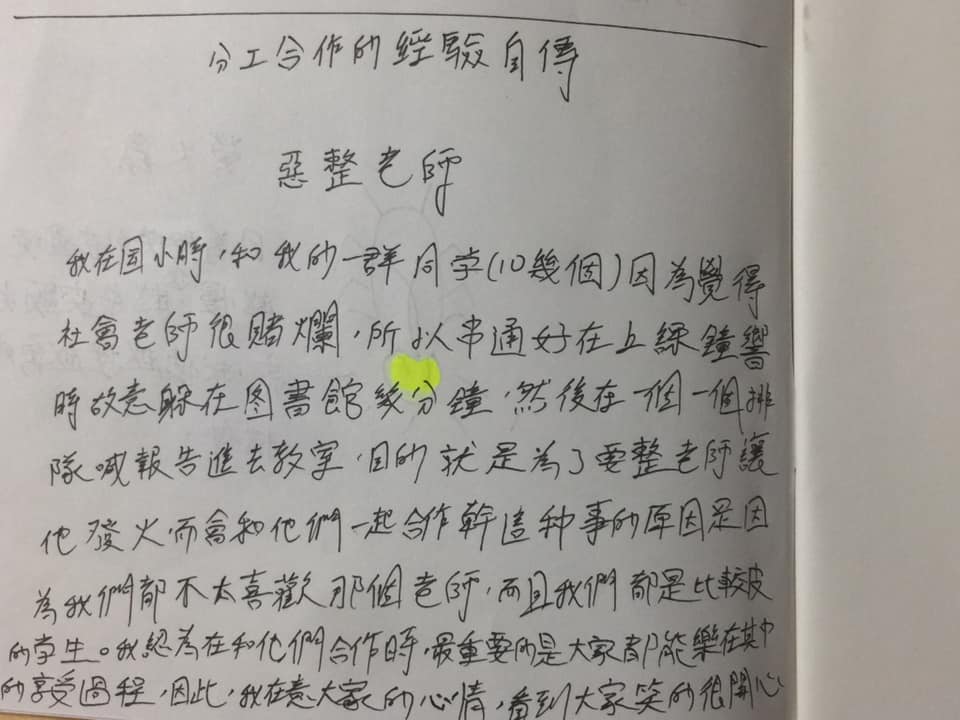 分工合作的經驗自傳
惡整老師
我在国小時，和我的一群同学(10幾個)因為覺得
社會老師很賭爛，所以串通好在上課鐘響
時故意躲在图書館幾分鐘，然後在一個一個排
隊喊報告進去教室，目的就是為了要整老師讓
他發火，而會和他們一起合作幹這种事的原因是因
為我們都不太喜歡那個老師，而且我們都是比較皮
的学生。我認為在和他們合作時，最重要的是大家都能樂在其中
的享受過程，因此，我在意大家的心情，看到大家笑的很開心